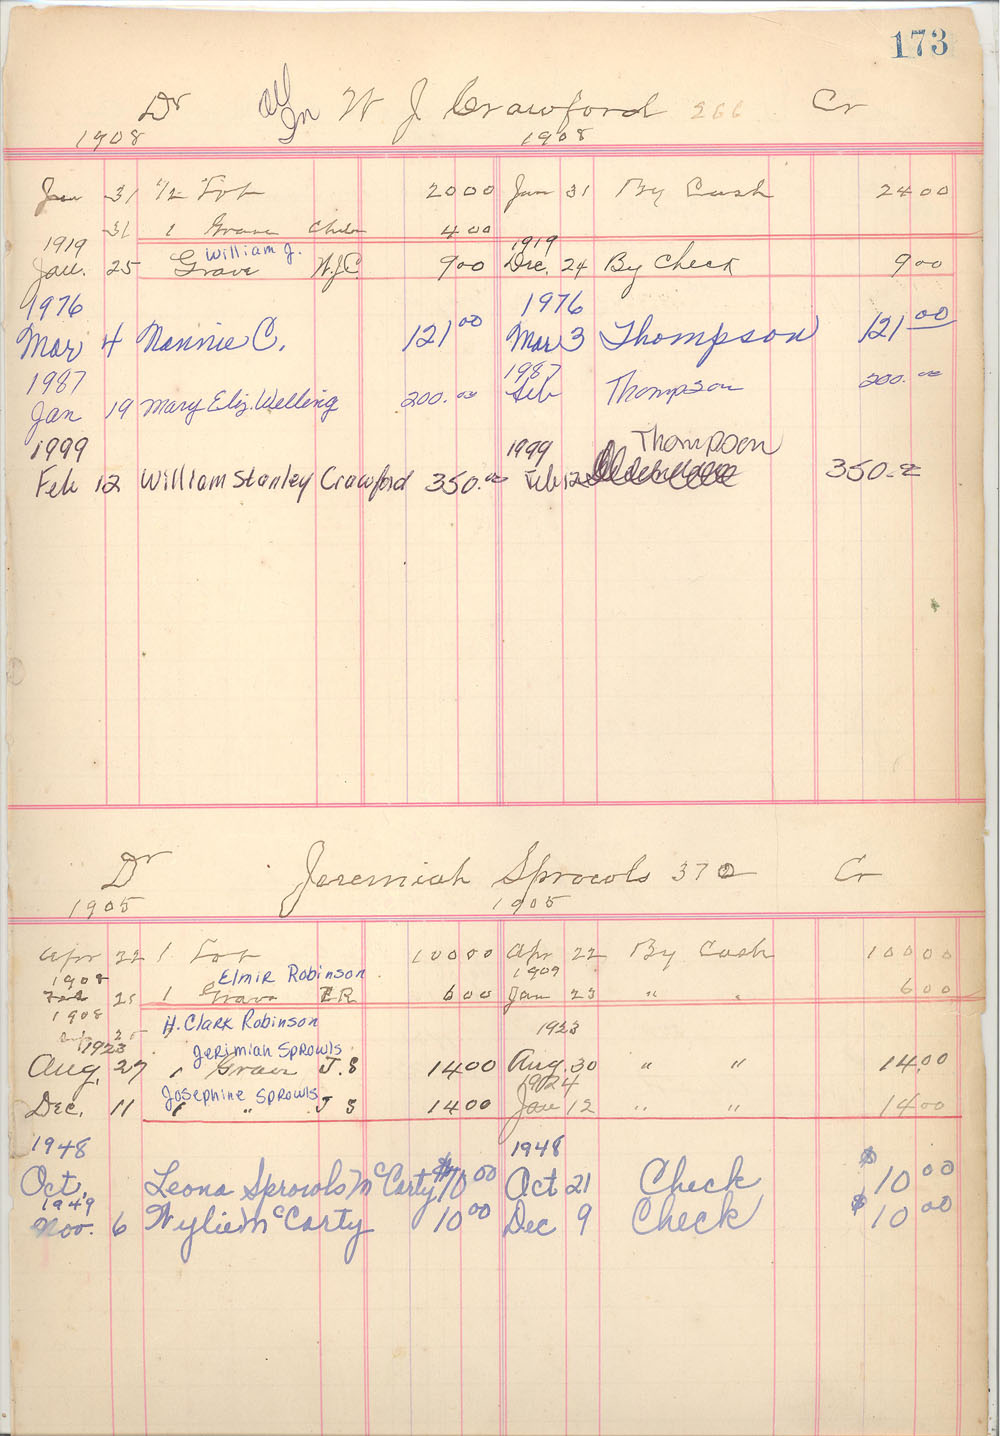 173
Dr All In W J Crawford 266 Cr
1908 1908
Jan 31 1/2 Lot 20 00 Jan 31 By Cash 24 00
31 1 Grave 4 00
1919 William J. 1919
Jan. 25 Grave W.J.C. 9 00 Dec. 24 By Check 9 00
1976 1976
Mar 4 Nannie C. 121 00 Mar 3 Thompson 121 00
1987 1987
Jan 19 Mary Eliz. Welling 200.00 Feb Thompson 200.00
1999 1999 Thompson
Feb 12 William Stanley Crawford 350.00 Feb 12 350.00
Dr Jeremiah Sprowls 372 Cr
1905 1905
Apr 22 1 Lot 100 00 Apr 22 By Cash 100 00
1908 Elmir Robinson 1909
Feb 25 1 Grave E R 6 00 Jan 23 " " 6 00
1908 H. Clark Robinson
1923 Jerimiah Sprowls 1923
Aug. 27 " Grave J.S 14 00 Aug. 30 " " 14.00
Josephine Sprowls 1924
Dec. 11 " " J S 14 00 Jan 12 " " 14 00
1948 1948
Oct. Leona Sprowls McCarty $10 00 Oct 21 Check $10 00
1949
Nov. 6 Wylie McCarty 10 00 Dec 9 Check $10 00